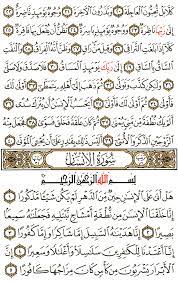 كَلَّا بَلْ تُحِبُّونَ ٱلْعَاجِلَةَ ٢٠ وَتَذَرُونَ ٱلْءَاخِرَةَ ٢١ وُجُوهٌ يَوْمَئِذٍ نَّاضِرَةٌ ٢٢
إِلَىٰ رَبِّهَا نَاظِرَةٌ ٢٣ وَوُجُوهٌ يَوْمَئِذٍۭ بَاسِرَةٌ ٢٤ تَظُنُّ أَن يُفْعَلَ بِهَا فَاقِرَةٌ
٢٥ كَلَّآ إِذَا بَلَغَتِ ٱلتَّرَاقِىَ ٢٦ وَقِيلَ مَنْ رَاقٍ ٢٧ وَظَنَّ أَنَّهُ ٱلْفِرَاقُ ٢٨ وَٱلْتَفَّتِ ٱلسَّاقُ
بِٱلسَّاقِ ٢٩ إِلَىٰ رَبِّكَ يَوْمَئِذٍ ٱلْمَسَاقُ ٣٠ فَلَا صَدَّقَ وَلَا صَلَّىٰ
٣١ وَلَٰكِن كَذَّبَ وَتَوَلَّىٰ ٣٢ ثُمَّ ذَهَبَ إِلَىٰٓ أَهْلِهِۦ يَتَمَطَّىٰٓ ٣٣ أَوْلَىٰ لَكَ فَأَوْلَىٰ
٣٤ ثُمَّ أَوْلَىٰ لَكَ فَأَوْلَىٰٓ ٣٥ أَيَحْسَبُ ٱلْإِنسَٰنُ أَن يُتْرَكَ سُدًى ٣٦ أَلَمْ يَكُ
نُطْفَةً مِّن مَّنِىٍّ يُمْنَىٰ ٣٧ ثُمَّ كَانَ عَلَقَةً فَخَلَقَ فَسَوَّىٰ ٣٨ فَجَعَلَ مِنْهُ
ٱلزَّوْجَيْنِ ٱلذَّكَرَ وَٱلْأُنثَىٰٓ ٣٩ أَلَيْسَ ذَٰلِكَ بِقَٰدِرٍ عَلَىٰٓ أَن يُحْـِۧىَ ٱلْمَوْتَىٰ ٤٠
سُورَةُ الإِنسَانِ
بِسْمِ ٱللَّهِ ٱلرَّحْمَٰنِ ٱلرَّحِيمِ
هَلْ أَتَىٰ عَلَى ٱلْإِنسَٰنِ حِينٌ مِّنَ ٱلدَّهْرِ لَمْ يَكُن شَيْـًٔا مَّذْكُورًا ١
إِنَّا خَلَقْنَا ٱلْإِنسَٰنَ مِن نُّطْفَةٍ أَمْشَاجٍ نَّبْتَلِيهِ فَجَعَلْنَٰهُ سَمِيعًۢا
بَصِيرًا ٢ إِنَّا هَدَيْنَٰهُ ٱلسَّبِيلَ إِمَّا شَاكِرًا وَإِمَّا كَفُورًا ٣
إِنَّآ أَعْتَدْنَا لِلْكَٰفِرِينَ سَلَٰسِلَا۟ وَأَغْلَٰلًا وَسَعِيرًا ٤ إِنَّ
ٱلْأَبْرَارَ يَشْرَبُونَ مِن كَأْسٍ كَانَ مِزَاجُهَا كَافُورًا ٥